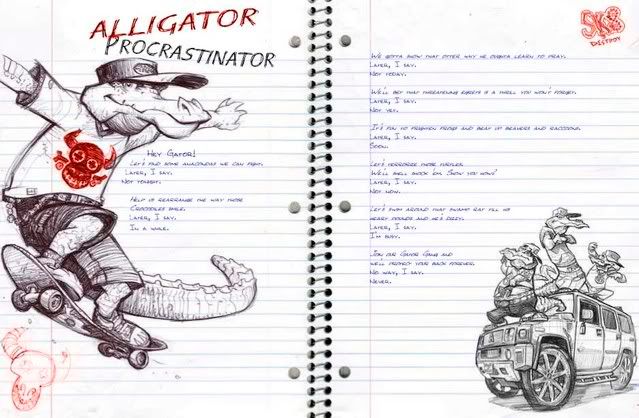 ALLIGATOR
PROCRASTINATOR
Hey Gator!
Let's find some anacondas we can fight.
Later, I say.
Not tonight.
Help us rearrange the way those
Crocodiles smile.
Later, I say.
In a while.
SK8
DESTROY
We gotta show that otter why he oughta learn to pray.
Later, I say.
Not today.
We'll bet that threatening egrets is a thrill you won't forget.
Later, I say.
Not yet.
It's fun to frighten frogs and beat up beavers and raccoons.
Later, I say.
Soon.
Let's terrorize those turtles.
We'll shell shock em. Show you how?
Later, I say.
Not now.
Let's swim around that swamp rat till he
heart pounds and he's dizzy.
Later, I say.
I'm busy.
Join our Gator Gang and
we'll protect your back forever.
No way, I say.
Never.